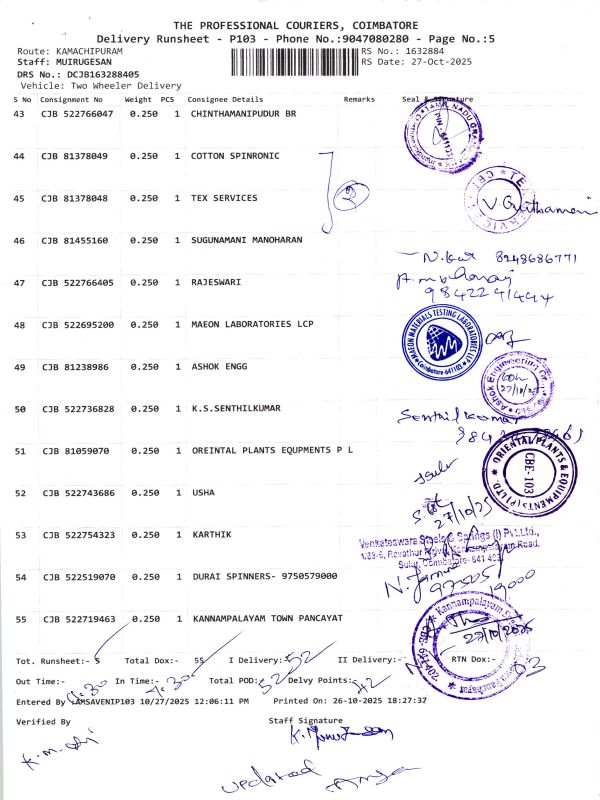 THE PROFESSIONAL COURIERS, COIMBATORE
Delivery Runsheet - P103 - Phone No.:9047080280 - Page No.:5
Route: KAMACHIPURAM RS No.: 1632884
Staff: MUIRUGESAN RS Date: 27-Oct-2025
DRS No.: DCJB163288405
Vehicle: Two Wheeler Delivery
S No Consignment No Weight PCS Consignee Details Remarks Seal & Signature
43 CJB 522766047 0.250 1 CHINTHAMANIPUDUR BR
44 CJB 81378049 0.250 1 COTTON SPINRONIC
45 CJB 81378048 0.250 1 TEX SERVICES
46 CJB 81455160 0.250 1 SUGUNAMANI MANOHARAN
8248686771
47 CJB 522766405 0.250 1 RAJESWARI
48 CJB 522695200 0.250 1 MAEON LABORATORIES LCP
MAEON MATERIALS TESTING LABORATORIES LLP
Coimbatore-641103
49 CJB 81238986 0.250 1 ASHOK ENGG
Ashok Engineering Co.
50 CJB 522736828 0.250 1 K.S.SENTHILKUMAR
Senthilkumar
51 CJB 81059070 0.250 1 OREINTAL PLANTS EQUPMENTS P L
ORIENTAL PLANTS & EQUIPMENTS (P) LTD.
CBE-103
52 CJB 522743686 0.250 1 USHA
27/10/25
53 CJB 522754323 0.250 1 KARTHIK
Venkateswara Steels & Springs (I) Pvt.Ltd.,
54 CJB 522519070 0.250 1 DURAI SPINNERS- 9750579000
97505
19000
55 CJB 522719463 0.250 1 KANNAMPALAYAM TOWN PANCAYAT
27/10/2025
Tot. Runsheet:- 5 Total Dox:- 55 I Delivery: 52 II Delivery:- RTN Dox:- 03
Out Time:- 9.30 In Time:- Total POD: 52 Delvy Points:
Entered By :AMSAVENIP103 10/27/2025 12:06:11 PM Printed On: 26-10-2025 18:27:37
Verified By Staff Signature
updated